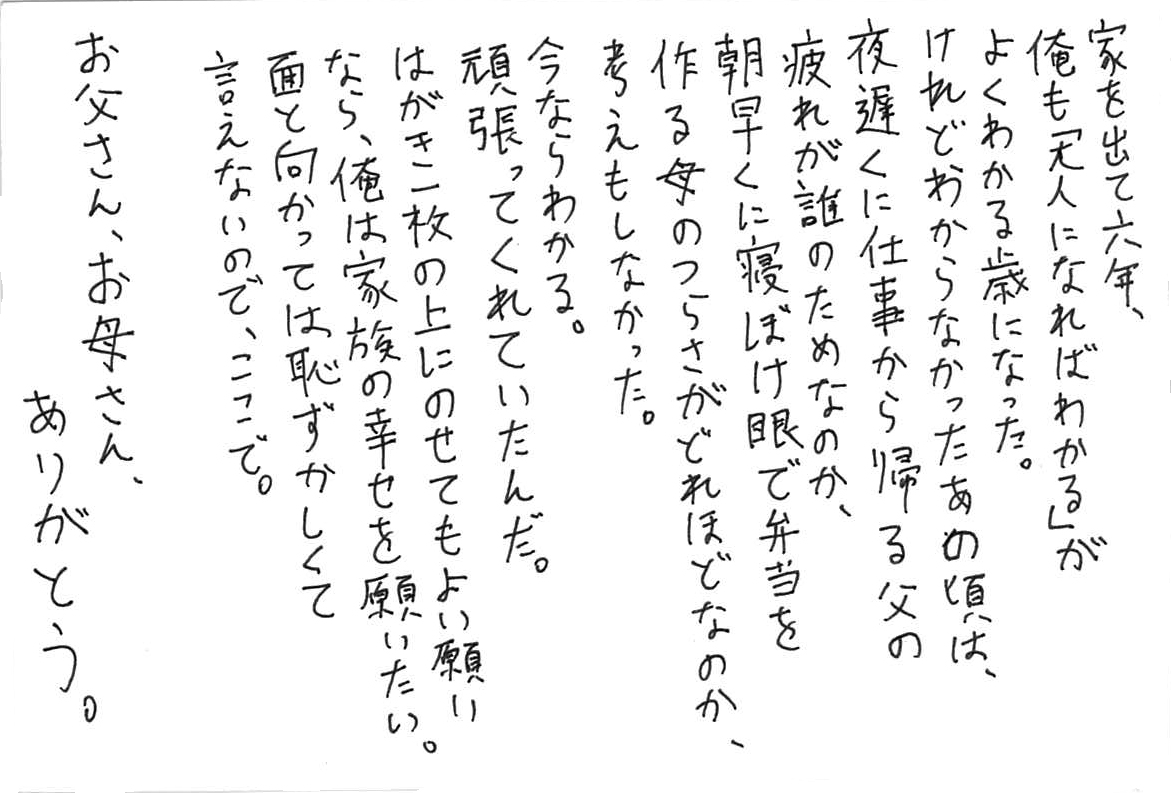 家を出て六年、
俺も「大人になればわかる」が
よくわかる歳になった。
けれどわからなかったあの頃は、
夜遅くに仕事から帰る父の
疲れが誰のためなのか、
朝早くに寝ぼけ眼で弁当を
作る母のつらさがどれほどなのか、
考えもしなかった。
今ならわかる。
頑張ってくれていたんだ。
はがき一枚の上にのせてもよい願い
なら、俺は家族の幸せを願いたい。
面と向かっては恥ずかしくて
言えないので、ここで。
お父さん、お母さん、
ありがとう。